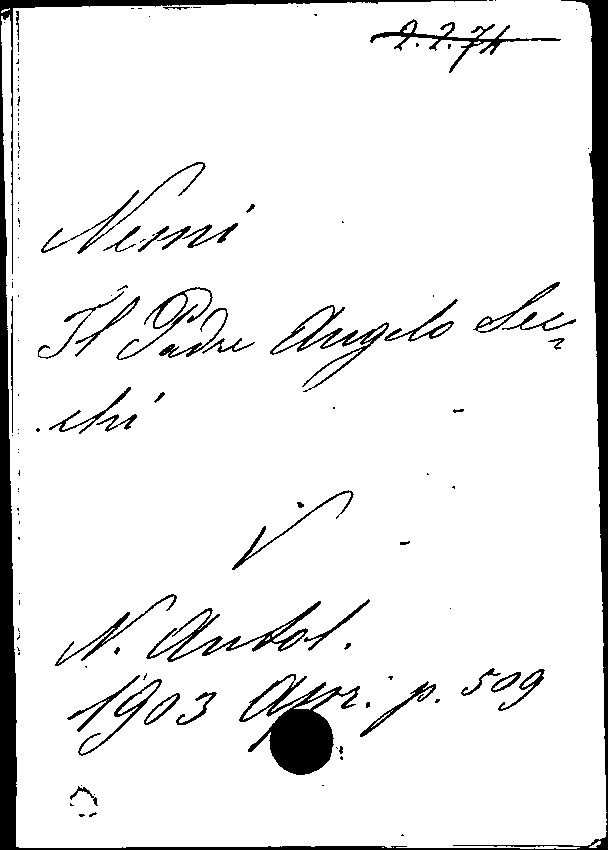 2.2.74
Nemi
Il Padre Angelo Sec=
chi
N. Antol.
1903 Apr. p. 509